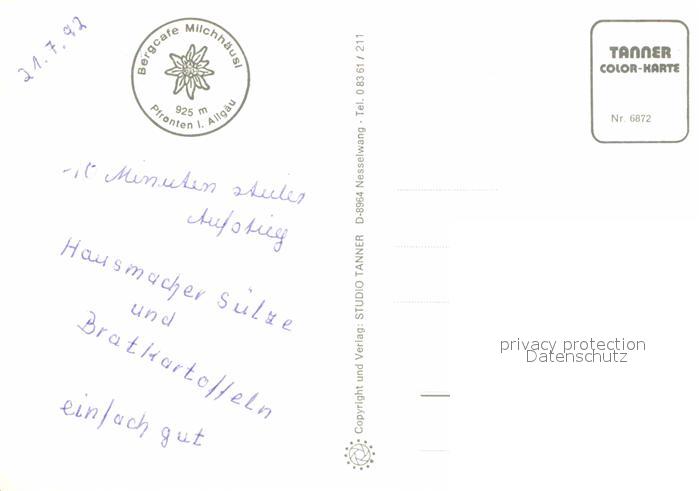 21.7.92
Bergcafe Milchhäusl
925 m
Pfronten i. Allgäu
Minuten steiler
Aufstieg
Hausmacher Sülze
und
Bratkartoffeln
einfach gut
Copyright und Verlag: STUDIO TANNER D-8964 Nesselwang · Tel. 0 83 61 / 211
TANNER
COLOR-KARTE
Nr. 6872
privacy protection
Datenschutz